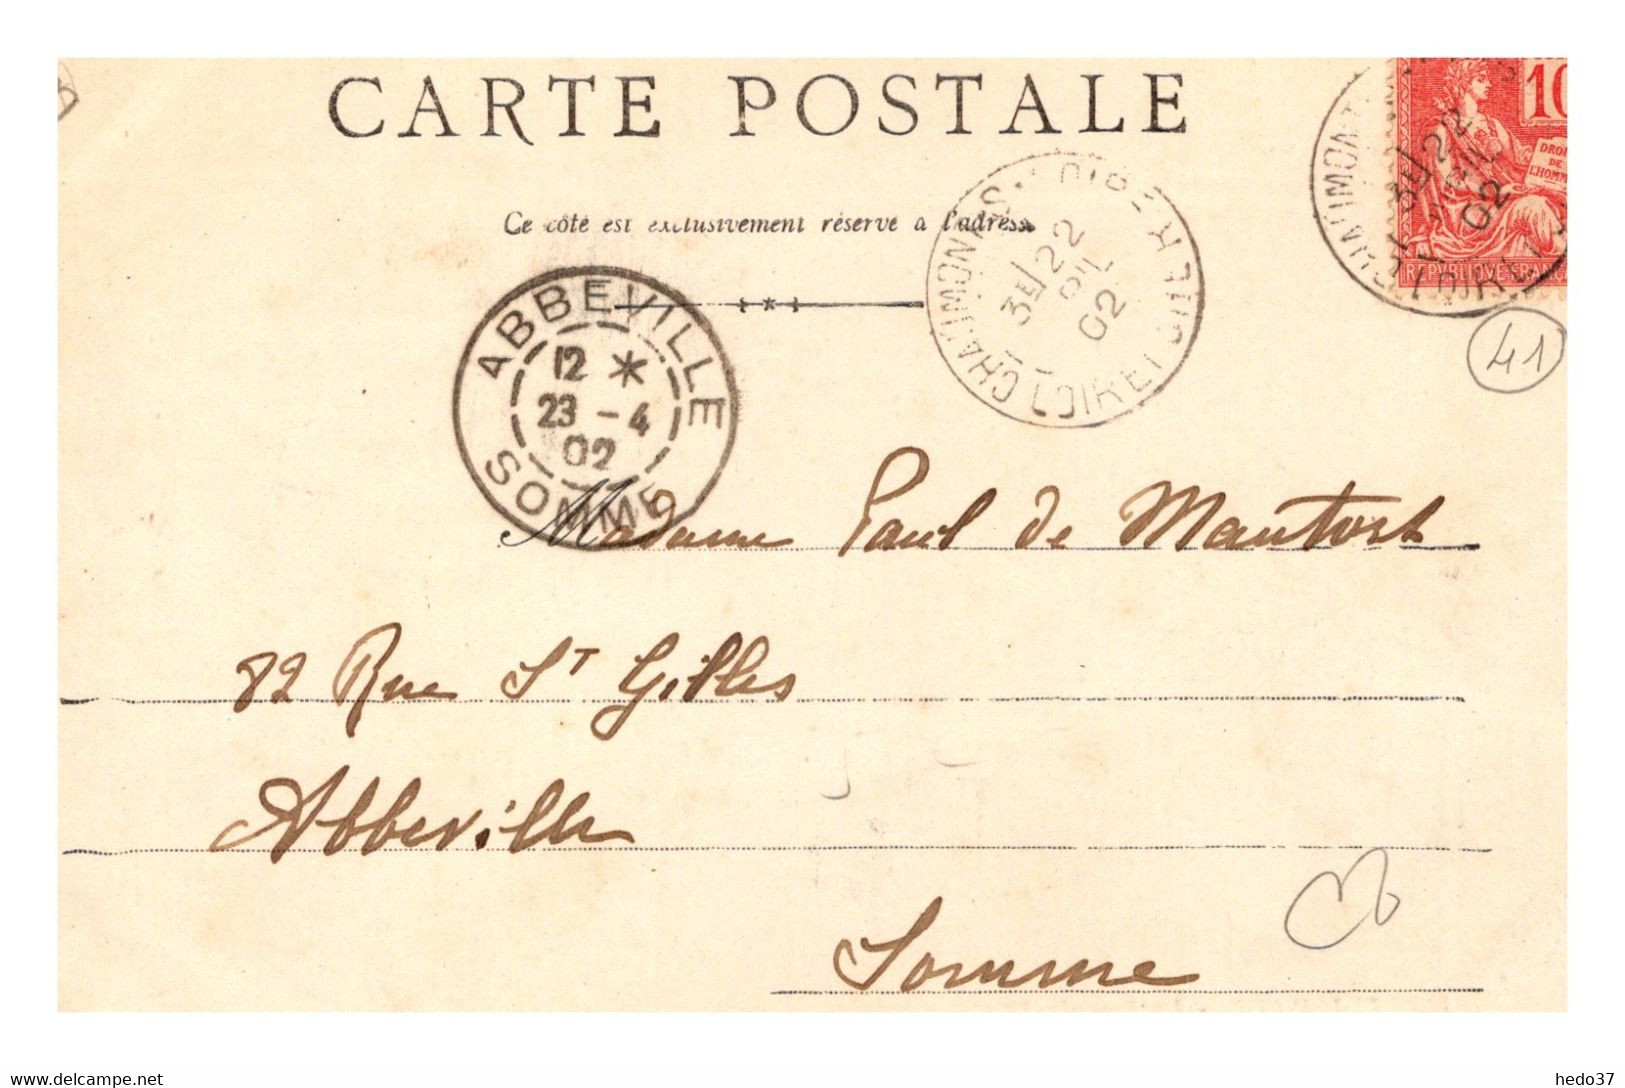 CARTE POSTALE
Ce côté est exclusivement réservé à l'adresse
ABBEVILLE
12 *
23 - 4
02
SOMME
CHAUMONT-S-LOIRE
3E/22
02
LOIR ET CHER
10
DROITS
DE
L'HOMME
REPUBLIQUE FRANÇAISE
41
Madame Paul de Mautort
82 Rue St Gilles
Abbeville
Somme
delcampe.net
hedo37